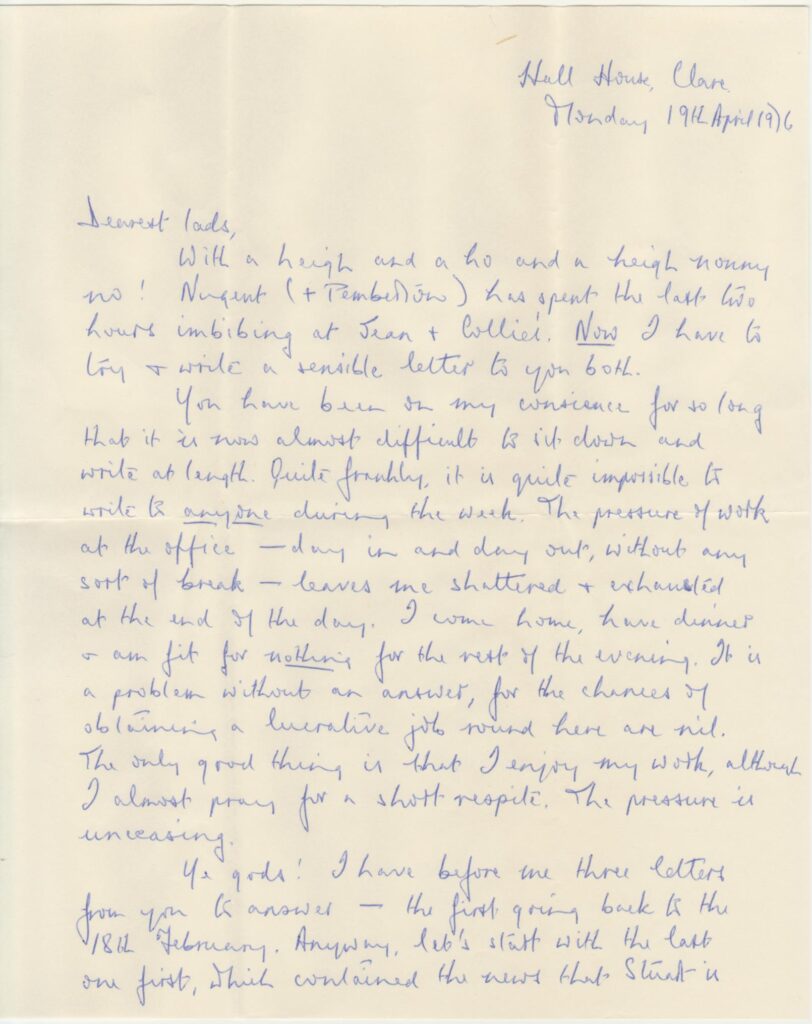 Hall House, Clare.
Monday 19th April 1976
Dearest lads,
With a heigh and a ho and a heigh nonny
no! Nugent (+ Pemberton) has spent the last two
hours imbibing at Jean + Collie's. Now I have to
try + write a sensible letter to you both.
You have been on my conscience for so long
that it is now almost difficult to sit down and
write at length. Quite frankly, it is quite impossible to
write to anyone during the week. The pressure of work
at the office — day in and day out, without any
sort of break — leaves me shattered + exhausted
at the end of the day. I come home, have dinner
+ am fit for nothing for the rest of the evening. It is
a problem without an answer, for the chances of
obtaining a lucrative job round here are nil.
The only good thing is that I enjoy my work, although
I almost pray for a short respite. The pressure is
unceasing.
Ye gods! I have before me three letters
from you to answer — the first going back to the
18th February. Anyway, let's start with the last
one first, which contained the news that Stuart is